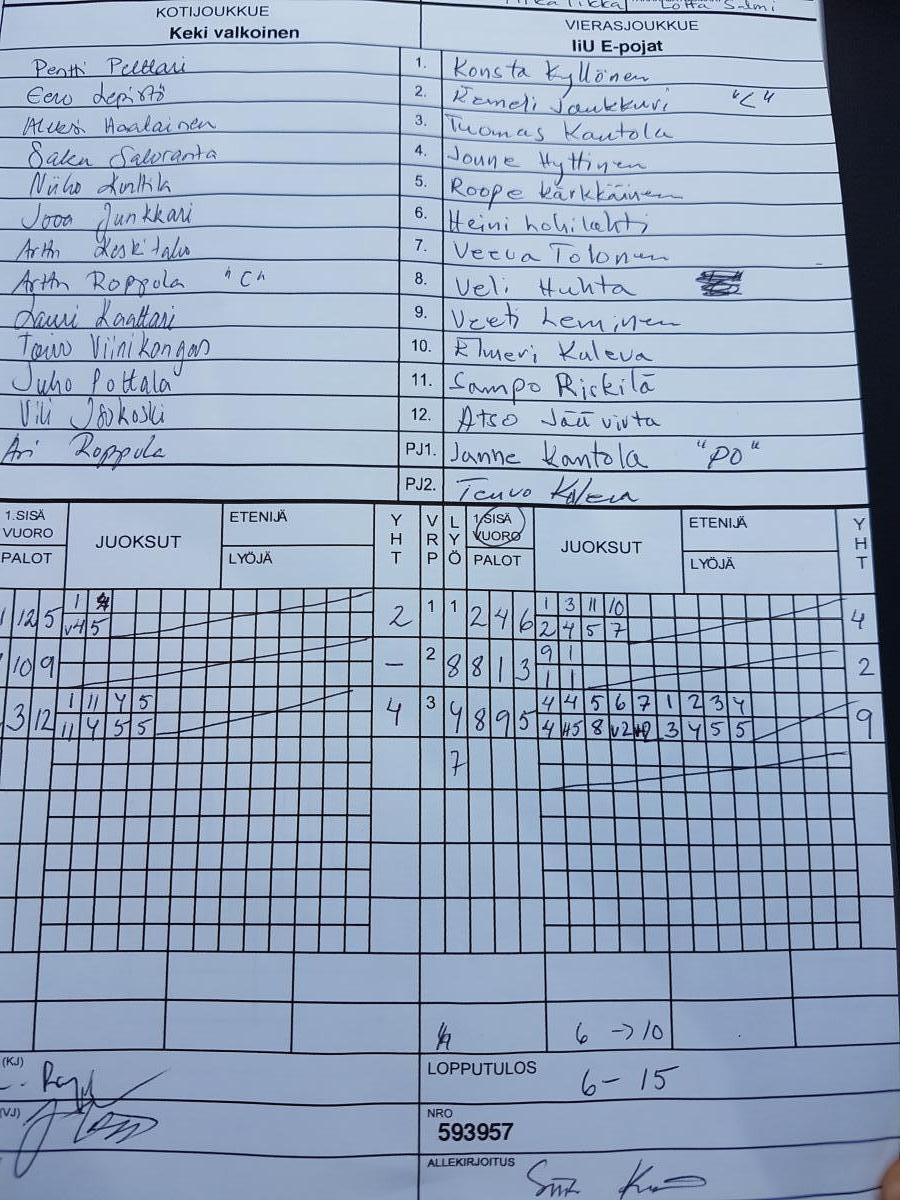 Lotta Salmi
KOTIJOUKKUE VIERASJOUKKUE
Keki valkoinen IiU E-pojat
Pentti Pelttari 1. Konsta Kyllönen
Eero Lepistö 2. Eemeli Jaukkuri "C"
Aleksi Haalainen 3. Tuomas Kantola
Saku Saloranta 4. Joune Hyttinen
Niilo Kinttila 5. Roope Kärkkäinen
Jooa Junkkari 6. Heini Lohilahti
Artta Keskitalo 7. Veeva Tolonen
Arttu Roppola "C" 8. Veli Huhta
Lauri Kanttari 9. Veeti Leminen
Toivo Viinikangas 10. Elmeri Kaleva
Juho Pottala 11. Sampo Riskilä
Vili Isokoski 12. Atso Jäävirta
Ari Roppola PJ1. Janne Kantola "PO"
PJ2. Teuvo Kaleva
1.SISÄ VUORO JUOKSUT ETENIJÄ YHT VRP LYÖ 1.SISÄ VUORO JUOKSUT ETENIJÄ YHT
PALOT LYÖJÄ PALOT LYÖJÄ
1 4 1 3 11 10
1 12 5 v4 5 2 1 1 2 4 6 2 4 5 7 4
9 1
10 9 – 2 8 8 1 3 1 1 2
1 11 4 5 4 4 5 6 7 1 2 3 4
3 12 11 4 5 5 4 3 4 8 9 5 4 H5 8 v2 3 4 5 5 9
7
6 → 10
(KJ) LOPPUTULOS 6 – 15
(VJ) NRO
593957
ALLEKIRJOITUS